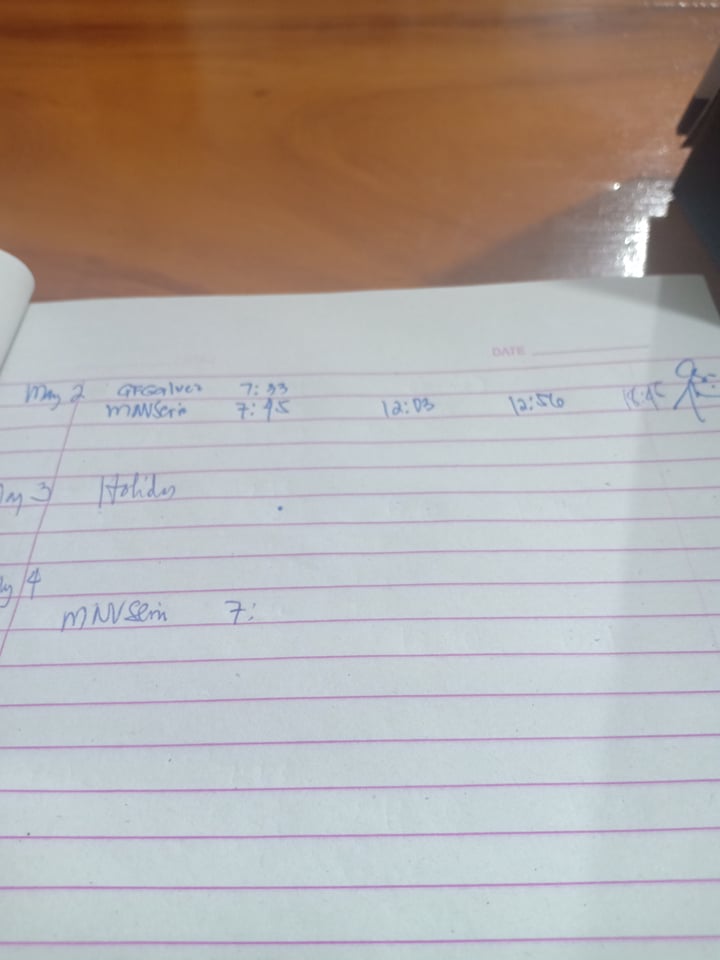 DATE
May 2 GFGalvez 7:33
MNVSerin 7:45 12:03 12:56 18:45
May 3 Holiday
4
MNVSerin 7: